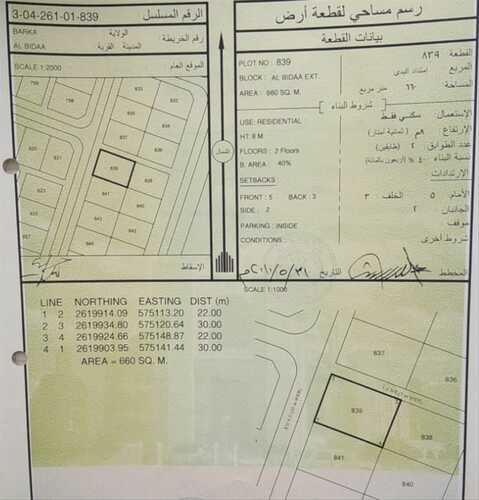 3-04-261-01-839 الرقم المسلسل
رسم مساحي لقطعة أرض
BARKA الولاية
AL BIDAA المدينة القرية
رقم الخريطة
SCALE 1:2000 الموقع العام
بيانات القطعة
PLOT NO : 839
القطعة ٨٣٩
BLOCK : AL BIDAA EXT.
المربع امتداد البدي
AREA : 660 SQ. M.
المساحة ٦٦٠ متر مربع
شروط البناء
USE: RESIDENTIAL
الإستعمال: سكني فقط
HT: 8 M
الإرتفاع ٨م (ثمانية أمتار)
FLOORS : 2 Floors
عدد الطوابق ٢ (طابقين)
B. AREA 40%
نسبة البناء ٤٠٪ (أربعون بالمائة)
SETBACKS
الإرتدادات
FRONT : 5 BACK : 3
الأمام: ٥ الخلف ٣
SIDE : 2
الجانبان ٢
PARKING : INSIDE
موقف
CONDITIONS :
شروط أخرى
المخطط
التاريخ
الإسقاط
الشمال
839
837
841
SCALE 1:1000
LINE NORTHING EASTING DIST (m)
1 2 2619914.09 575113.20 22.00
2 3 2619934.80 575120.64 30.00
3 4 2619924.66 575148.87 22.00
4 1 2619903.95 575141.44 30.00
AREA = 660 SQ. M.
837
836
839
838
841
840